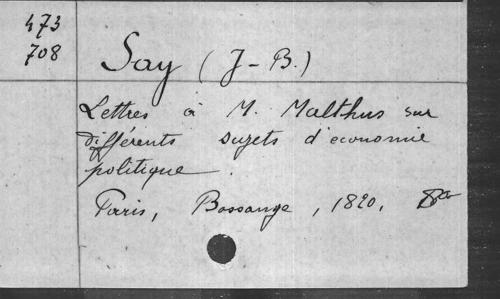 473
708
Say (J-B.)
Lettres à M. Malthus sur
différents sujets d'economie
politique.
Paris, Bossange, 1820, 8º